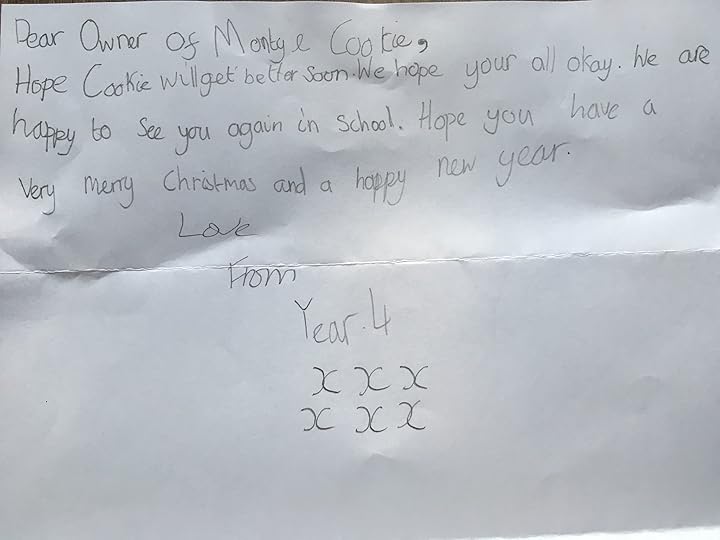 Dear Owner of Montgl Cookie,
Hope Cookie will get better soon. We hope your all okay. We are
happy to see you again in school. Hope you have a
very merry Christmas and a happy new year.
Love
From
Year.4
x x x
x x x